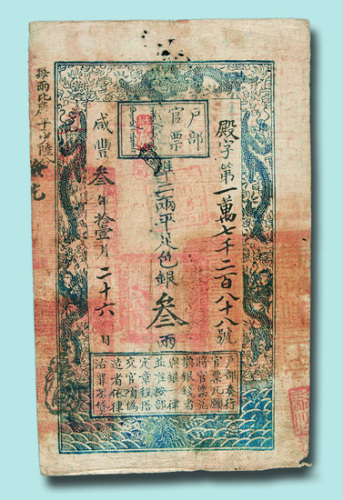 戶部
官票
殿字第一萬七千二百八十八號
准二兩平足色銀叁兩
咸豐叁年拾壹月二十六日
戶部奏行
官票凡願
將官票兌
換銀錢者
與銀一律
並准按部
定章程搭
交官項偽
造者依律
治罪不貸